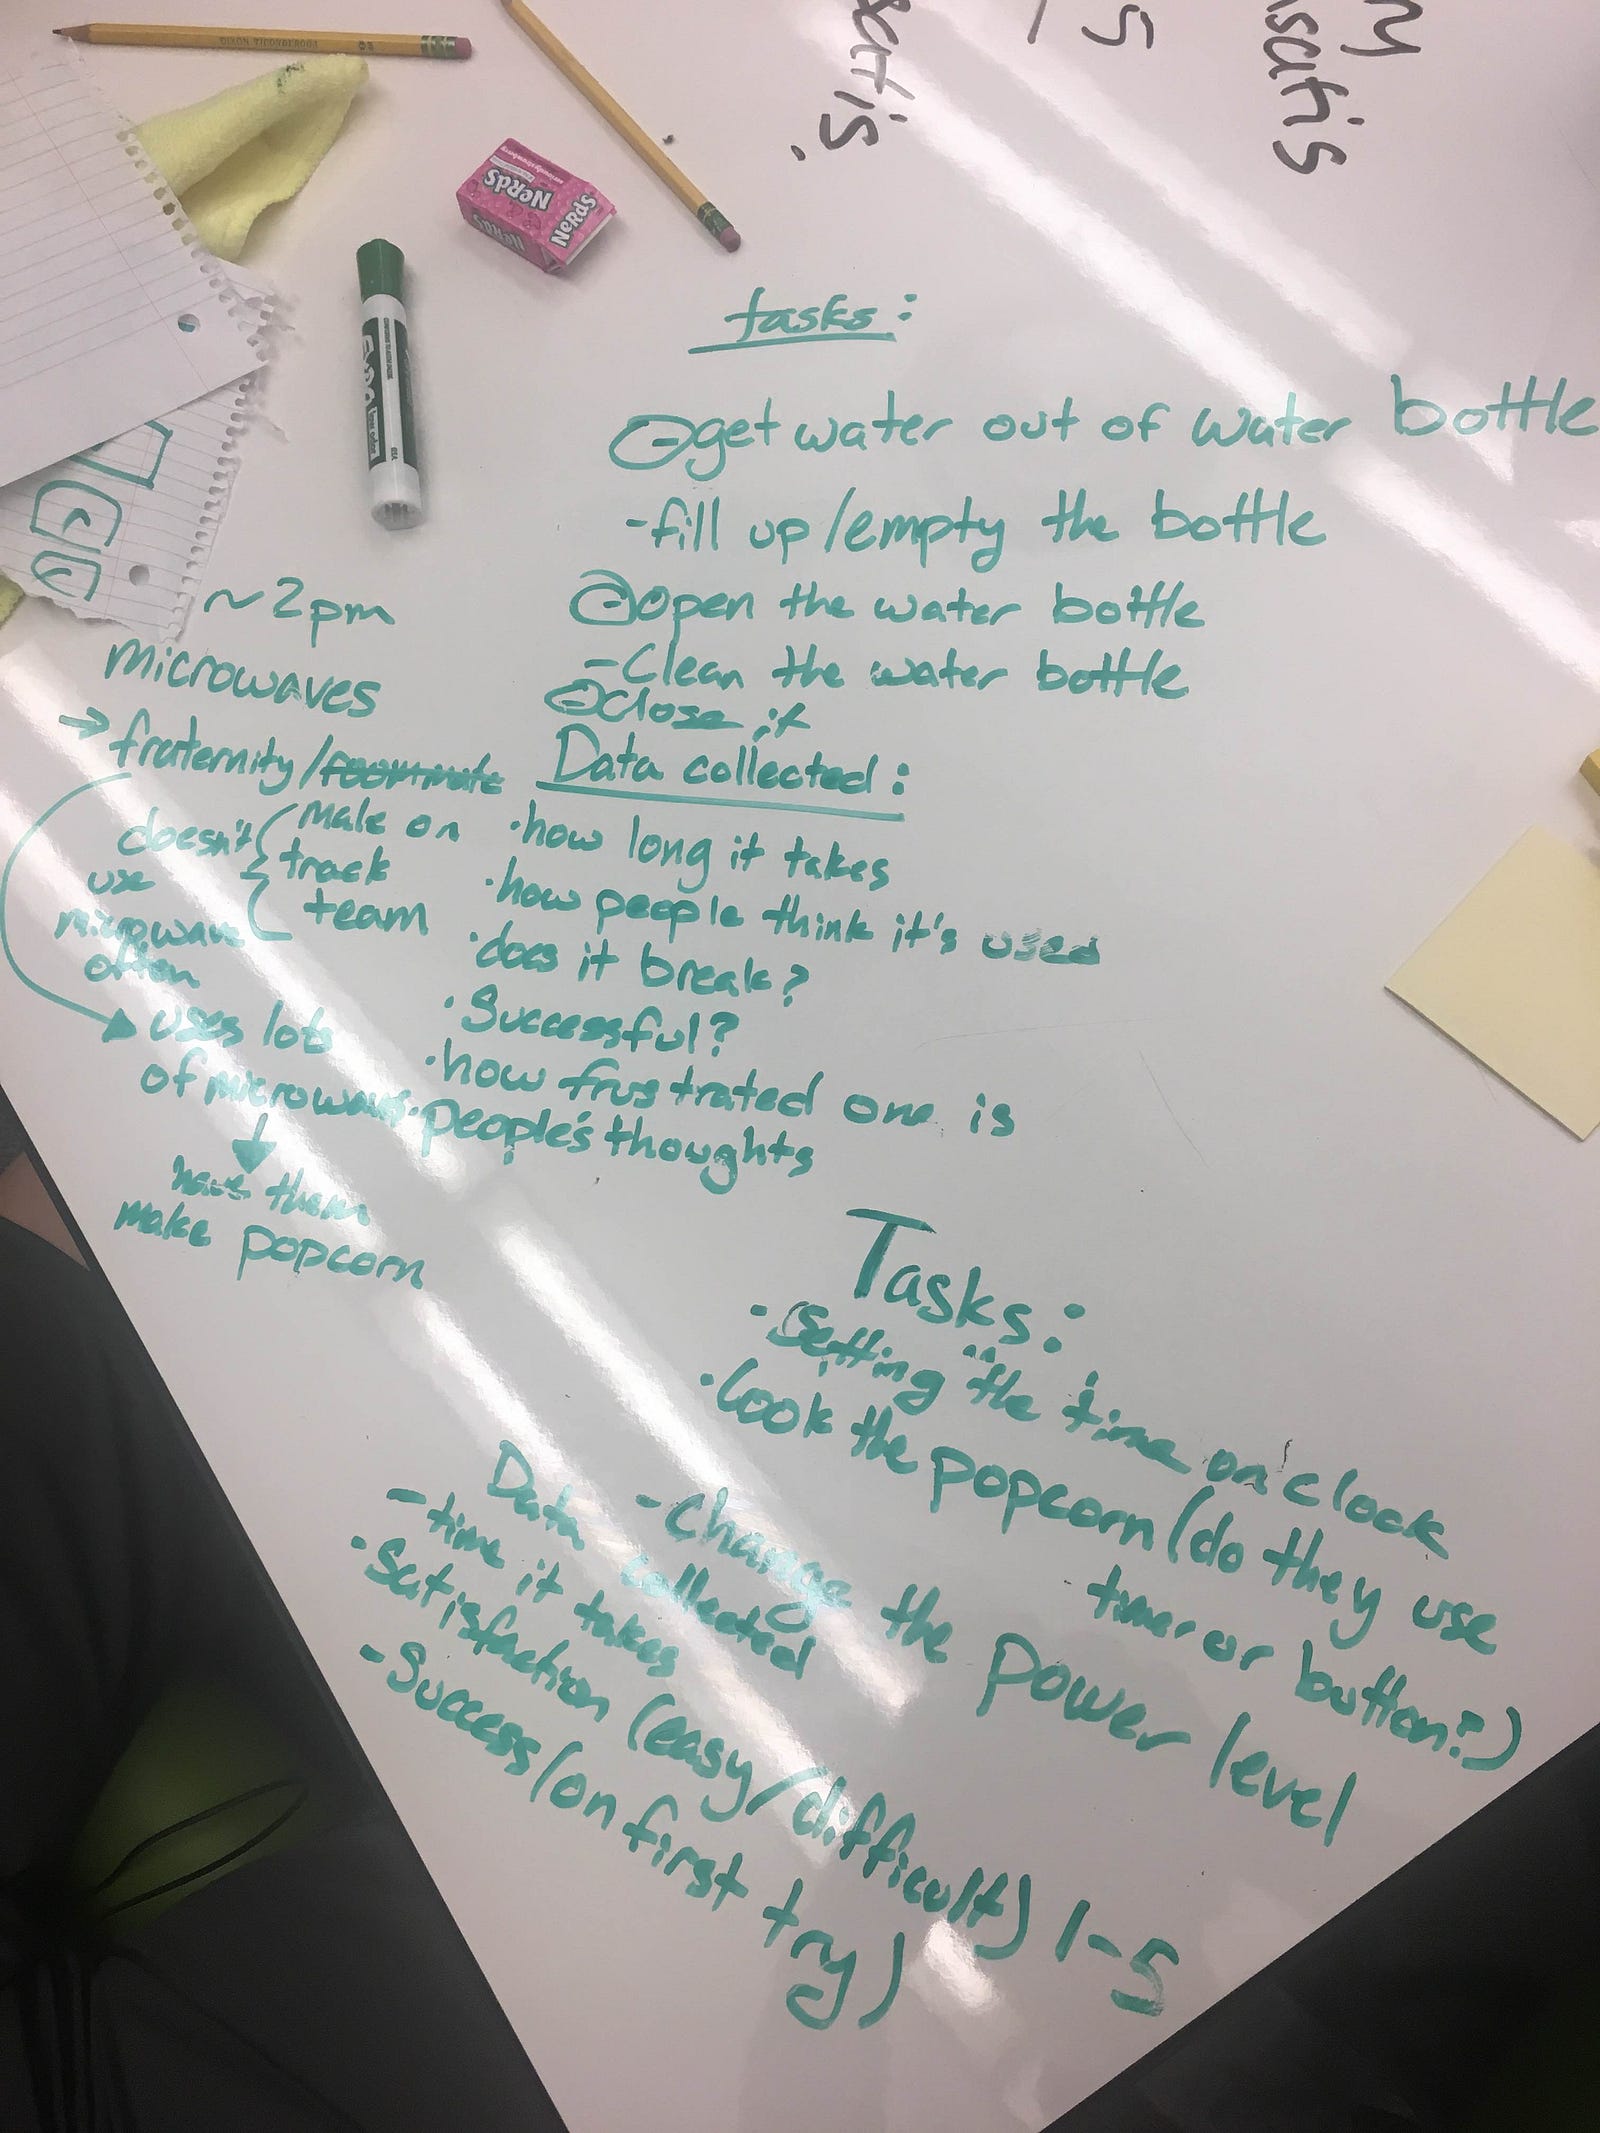 tasks:
-get water out of water bottle
-fill up/empty the bottle
-open the water bottle
-Clean the water bottle
-close it
Data collected:
·how long it takes
·how people think it's used
·does it break?
·Successful?
·how frustrated one is
·people's thoughts
~2pm
microwaves
→ fraternity/roommate
Male on
track
team
doesn't
use
microwave
often
uses lots
of microwave
have them
make popcorn
Tasks:
·Setting the time on clock
·Cook the popcorn (do they use
timer or button?)
-Change the power level
Data collected
-time it takes
·Satisfaction (easy/difficult) 1-5
-Success (on first try)
satis.
5
satis
NERDS
NERDS
NERDS
EXPO